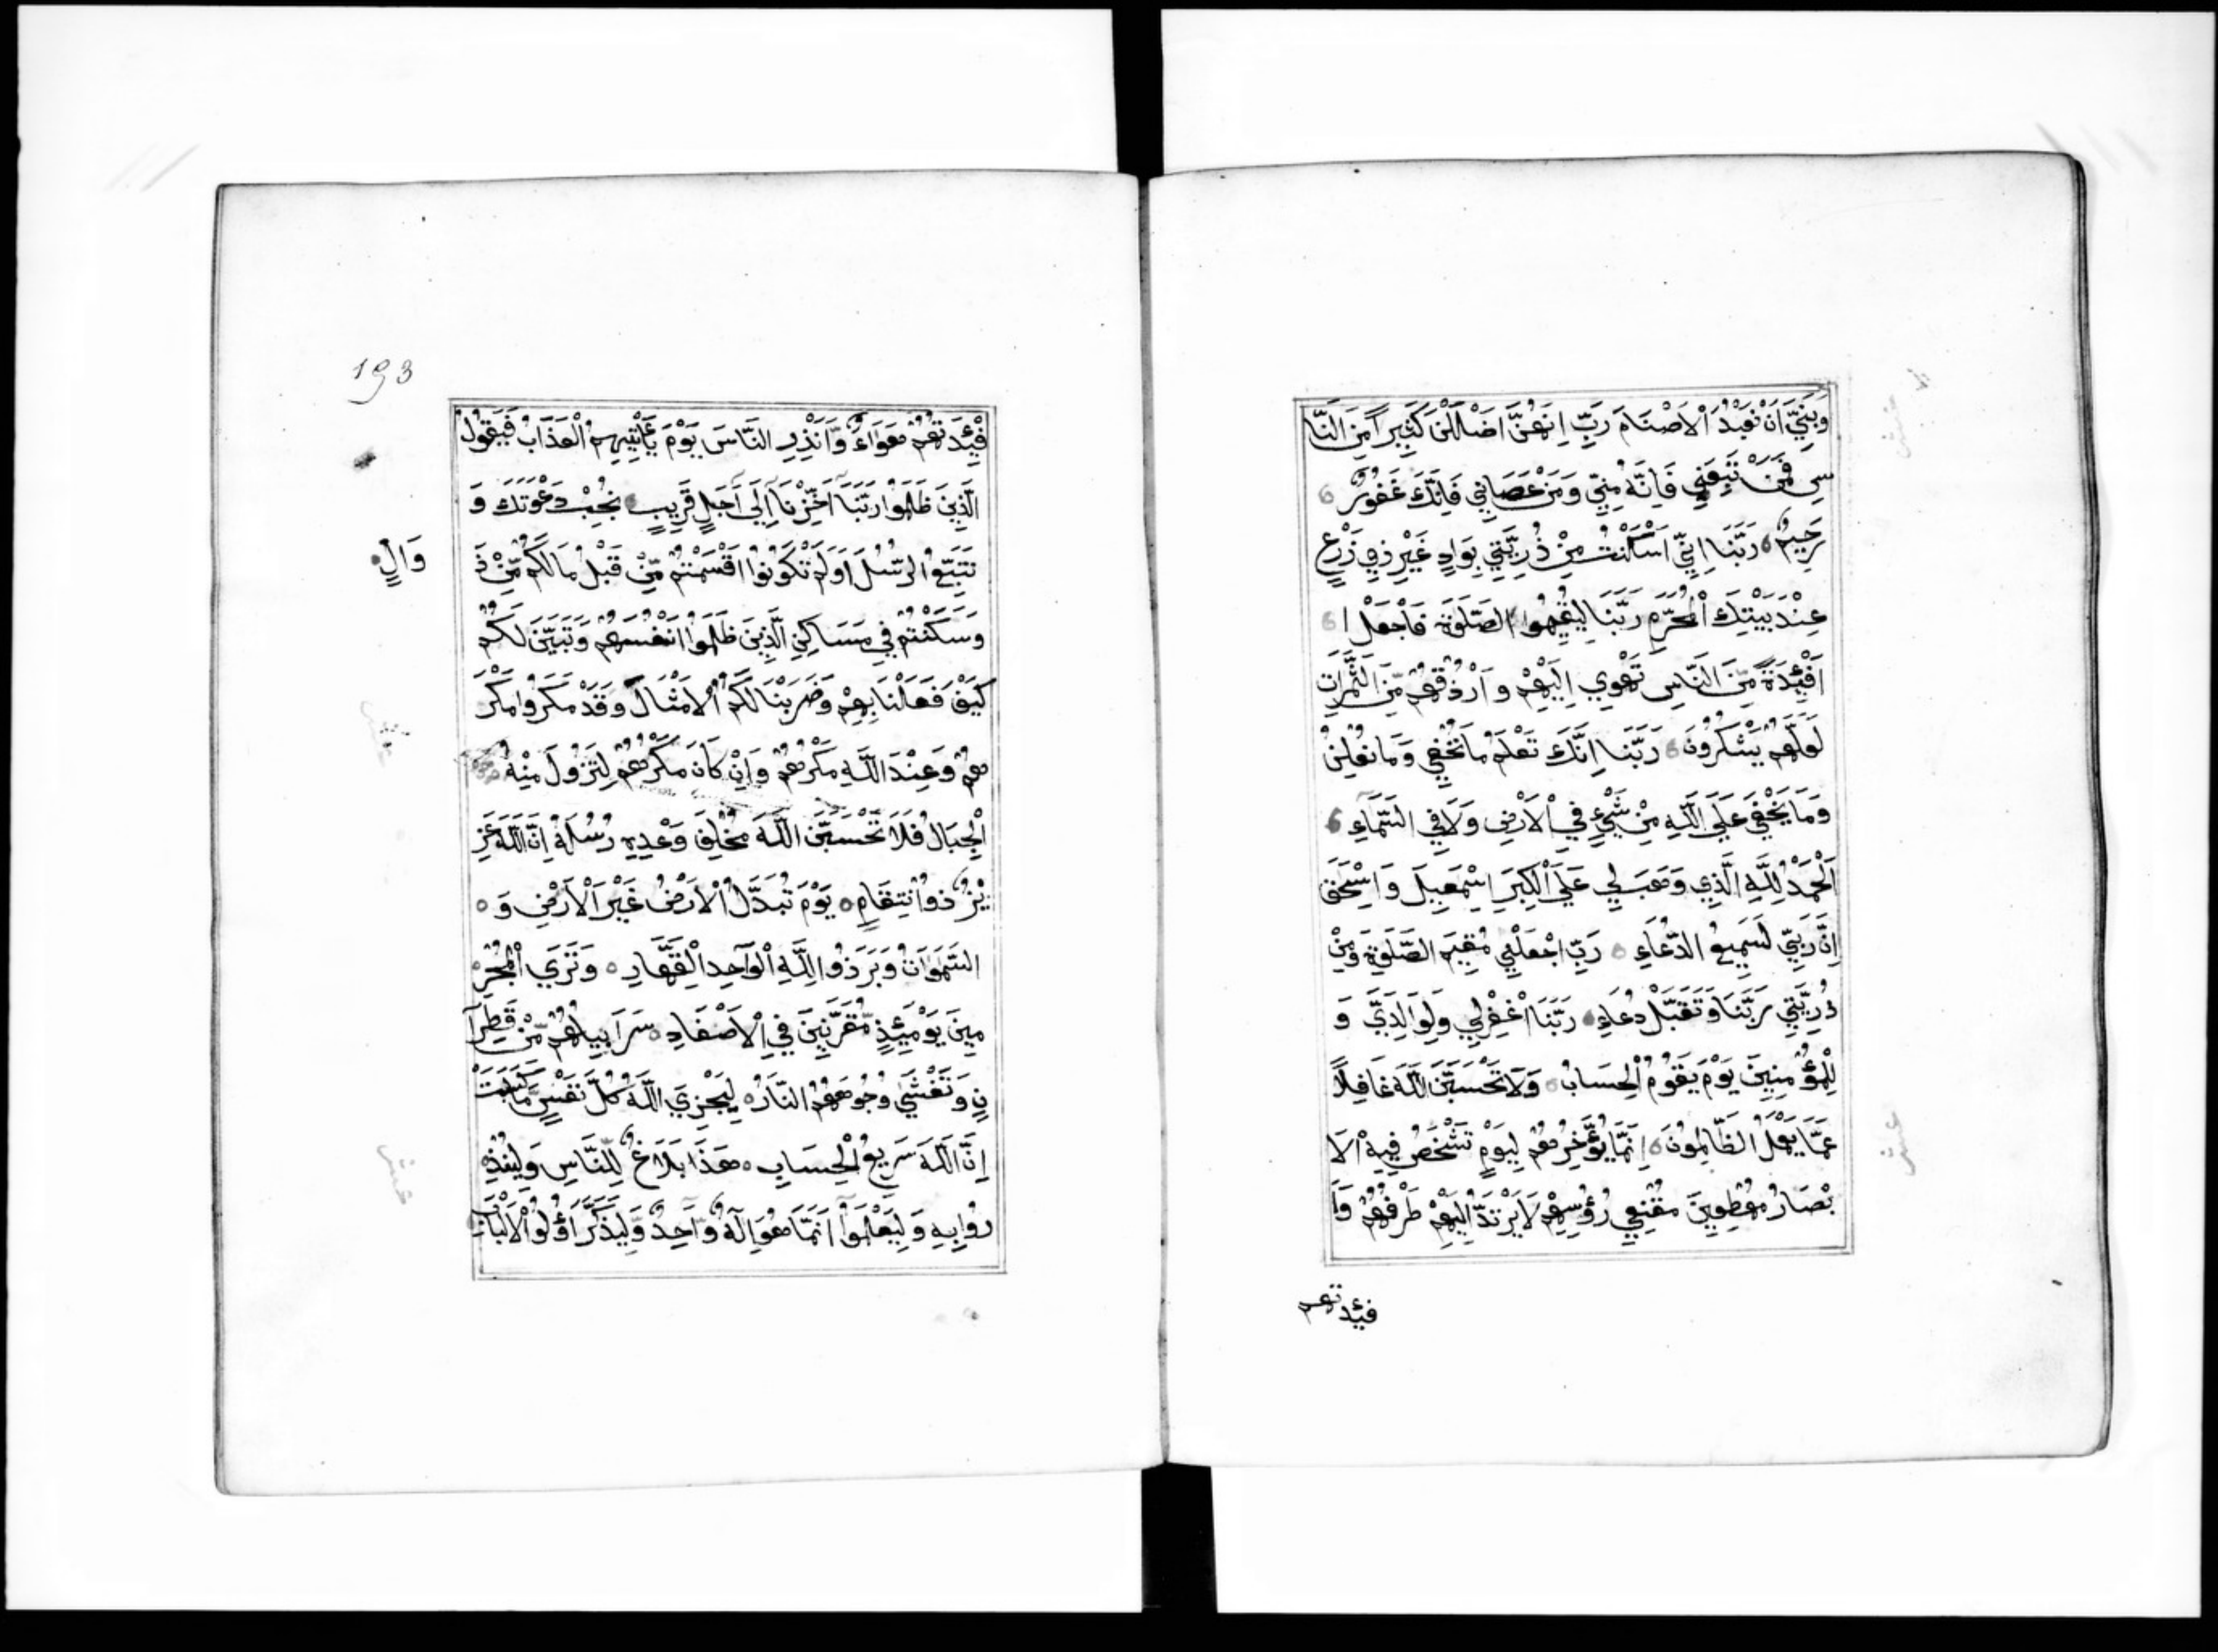 وَبَنِيَّ اَنْ نَعْبُدَ اْلاَصْنَامَ رَبِّ اِنَهُنَّ اَضْلَلْنَ كَثِيرًا مِنَ النَّا
سِ فَمَنْ تَبِعَنِي فَاِنَّهُ مِنِّي وَمَنْ عَصَانِي فَاِنَّكَ غَفُورٌ
رَحِيمٌ رَبَّنَا اِنِّي اَسْكَنْتُ مِنْ ذُرِيَّتِي بِوَادٍ غَيْرِ ذِي زَرْعٍ
عِنْدَ بَيْتِكَ اْلمُحَرَّمِ رَبَّنَا لِيُقِيمُوا الصَّلَوةَ فَاجْعَلْ ا
اَفْئِدَةً مِّنَ النَّاسِ تَهْوِي اِلَيْهِمْ وارْزُقْهُمْ مِّنَ الثَّمَرَاتِ
لَعَلَّهُمْ يَشْكُرُونَ رَبَّنَا اِنَّكَ تَعْلَمُ مَا نُخْفِي وَمَا نُعْلِنُ
وَمَا يَخْفَي عَلَي اللَّهِ مِنْ شَيْءٍ فِي اْلاَرْضِ وَلاَ فِي السَّمَآءِ
اَلْحَمْدُ لِلَّهِ الَّذِي وَهَبَ لِي عَلَي الْكِبَرِ اِسْمَعِيلَ وَاِسْحَقَ
اِنَّ رَبِّي لَسَمِيعُ الدُّعَاءِ رَبِّ اجْعَلْنِي مُقِيمَ الصَّلَوةِ وَمِنْ
ذُرِيَّتِي رَبَّنَا وَتَقَبَّلْ دُعَاءِ رَبَّنَا اغْفِرْلِي وَلِوَالِدَيَّ وَ
لِلْمُؤْمِنِينَ يَوْمَ يَقُومُ الْحِسَابُ وَلاَ تَحْسَبَنَّ اللَّهَ غَافِلاً
عَمَّا يَعْمَلُ الظَّالِمُونَ اِنَّمَا يُؤَخِّرُهُمْ لِيَوْمٍ تَشْخَصُ فِيهِ اْلاَ
بْصَارُ مُهْطِعِينَ مُقْنِعِي رُؤُسِهِمْ لاَ يَرْتَدُّ اِلَيْهِمْ طَرْفُهُمْ وَاَ
فئدتهم
193
فْئِدَتُهُمْ هَوَاءٌ وَّاَنْذِرِ النَّاسَ يَوْمَ يَأْتِيهِمُ الْعَذَابُ فَيَقُولُ
الَّذِينَ ظَلَمُوا رَبَّنَا اَخِّرْنَا اِلَى اَجَلٍ قَرِيبٍ نُّجِبْ دَعْوَتَكَ وَ
نَتَبِعِ الرُّسُلَ اَوَلَمْ تَكُونُوا اَقْسَمْتُمْ مِّنْ قَبْلُ مَالَكُمْ مِّنْ زَ
وَالٍ
وَسَكَنْتُمْ فِي مَسَاكِنِ الَّذِينَ ظَلَمُوا اَنْفُسَهُمْ وَتَبَيَّنَ لَكُمْ
كَيْفَ فَعَلْنَا بِهِمْ وَضَرَبْنَا لَكُمُ اْلاَمْثَالَ وَقَدْ مَكَرُوا مَكْرَ
هُمْ وَعِنْدَ اللَّهِ مَكْرُهُمْ وَاِنْ كَانَ مَكْرُهُمْ لِتَزُولَ مِنْهُ
الْجِبَالُ فَلاَ تَحْسَبَنَّ اللَّهَ مُخْلِفَ وَعْدِهِ رُسُلَهُ اِنَّ اللَّهَ عَزِ
يْزٌ ذُو انْتِقَامٍ يَوْمَ تُبَدَّلُ اْلاَرْضُ غَيْرَ اْلاَرْضِ وَ
السَّمَوَاتُ وَبَرَزُوا لِلَّهِ الْوَاحِدِ الْقَهَّارِ وَتَرَي الْمُجْرِ
مِينَ يَوْمَئِذٍ مُّقَرَّنِينَ فِي اْلاَصْفَادِ سَرَابِيلُهُمْ مِّنْ قَطِرَا
نٍ وَتَغْشَي وُجُوهَهُمُ النَّارُ لِيَجْزِيَ اللَّهُ كُلَّ نَفْسٍ مَّا كَسَبَتْ
اِنَّ اللَّهَ سَرِيعُ الْحِسَابِ هَذَا بَلاَغٌ لِلنَّاسِ وَلِيُنْذَ
رُوا بِهِ وَلِيَعْلَمُوا اَنَّمَا هُوَ اِلَهٌ وَّاحِدٌ وَّلِيَذَّكَّرَ اُولُوا اْلاَلْبَابِ